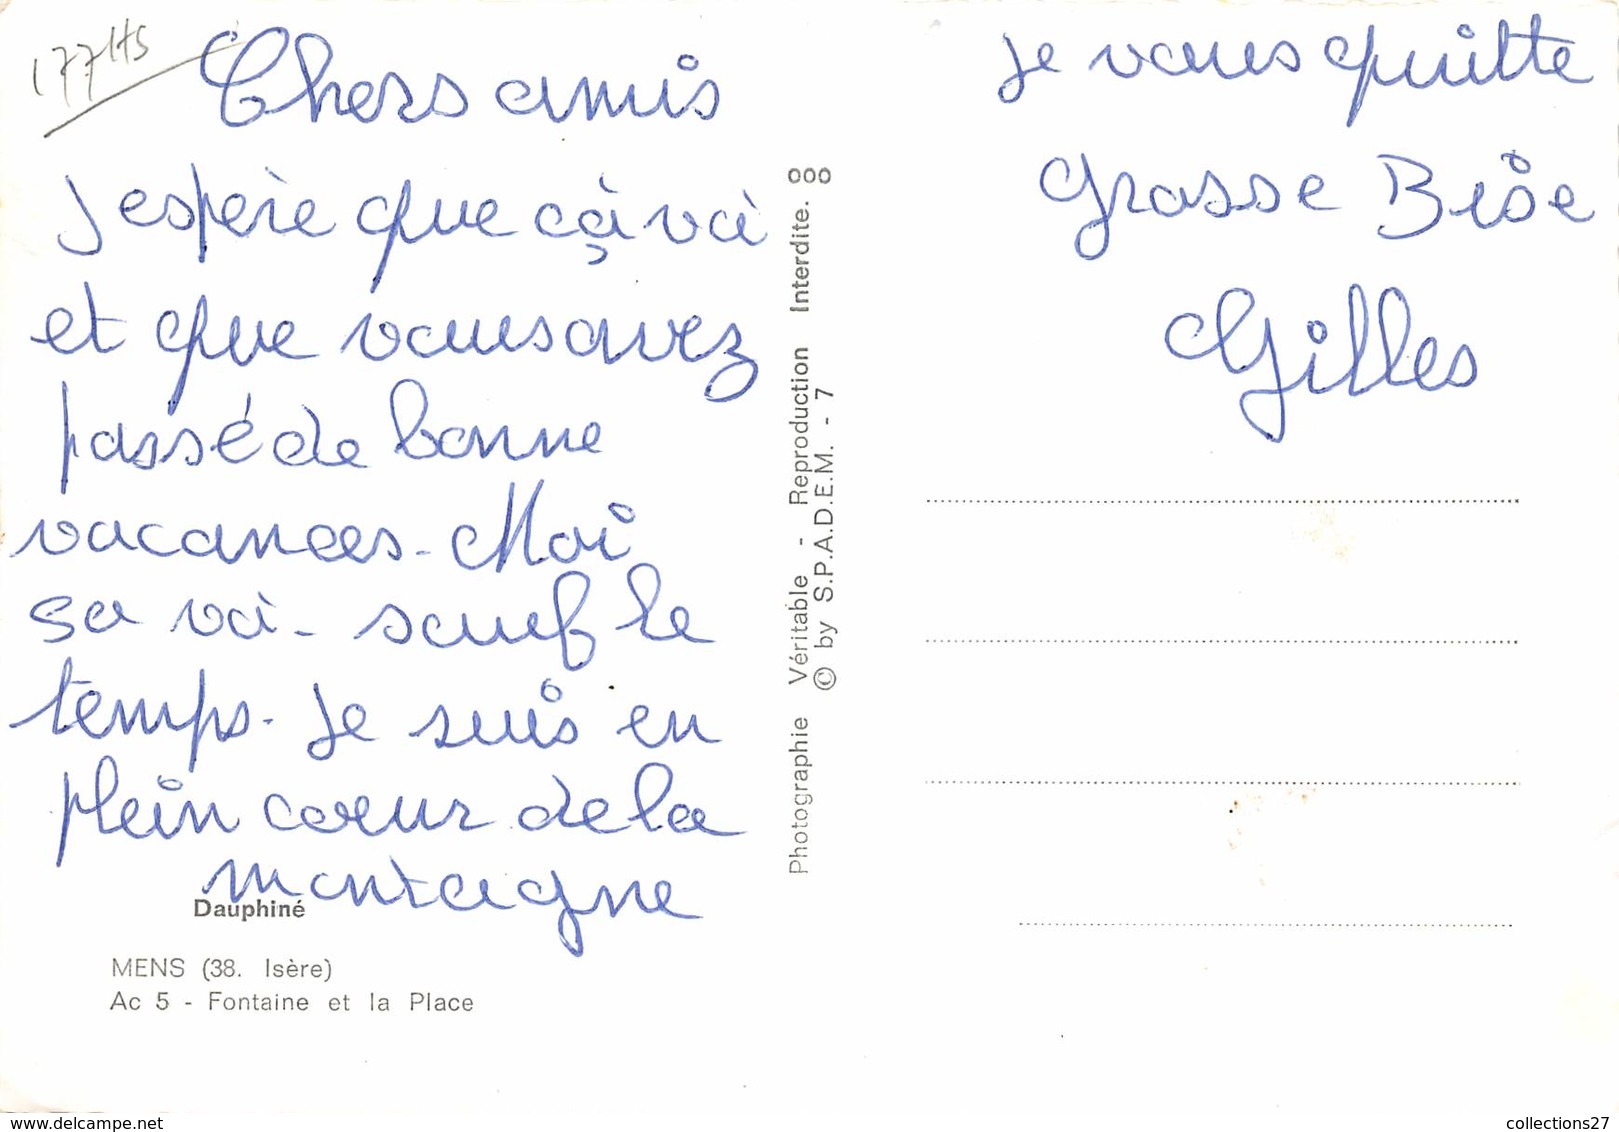 177HS
Chers amis
J espère que çà và
et que vous avez
passé de bonne
vacances - Moi
sa và - sauf le
temps - Je suis en
plein coeur de la
montagne
Dauphiné
MENS (38. Isère)
Ac 5 - Fontaine et la Place
Photographie Véritable - Reproduction Interdite. ooo
© by S.P.A.D.E.M. - 7
Je vous quitte
grosse Bise
Gilles
collections27